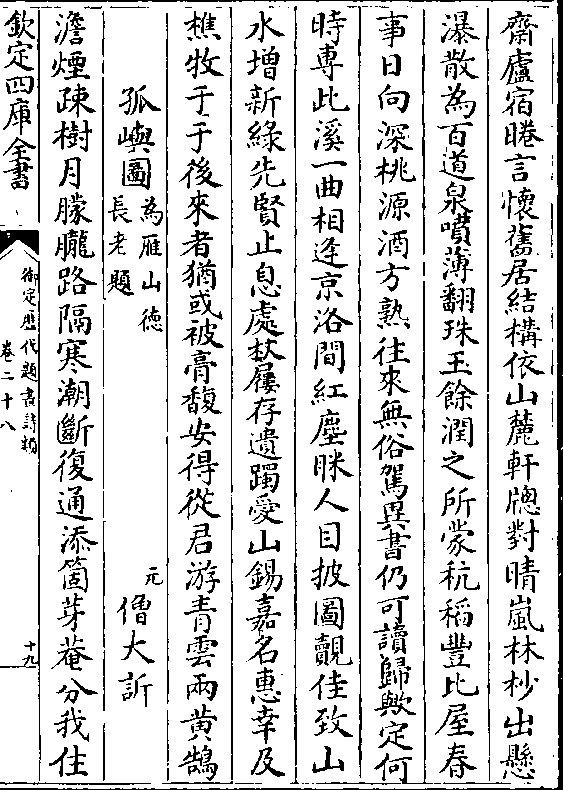 齋廬宿睠言懷舊居結構依山麓軒牕對晴嵐林杪出懸
瀑散為百道泉噴薄翻珠玉餘潤之所蒙秔稻豐比屋春
事日向深桃源酒方熟往來無俗駕異書仍可讀歸歟定何
時專此溪一曲相逢京洛間紅塵眯人目披圖覿佳致山
水增新綠先賢止息處杖屨存遺躅愛山錫嘉名惠幸及
樵牧于于後來者猶或被膏馥安得從君游青雲兩黄鵠
孤嶼圖為雁山德長老題 元 僧大訢
澹煙疎樹月朦朧路隔寒潮斷復通添箇芽菴分我住
欽定四庫全書
御定歷代題畫詩類
卷二十八
十九